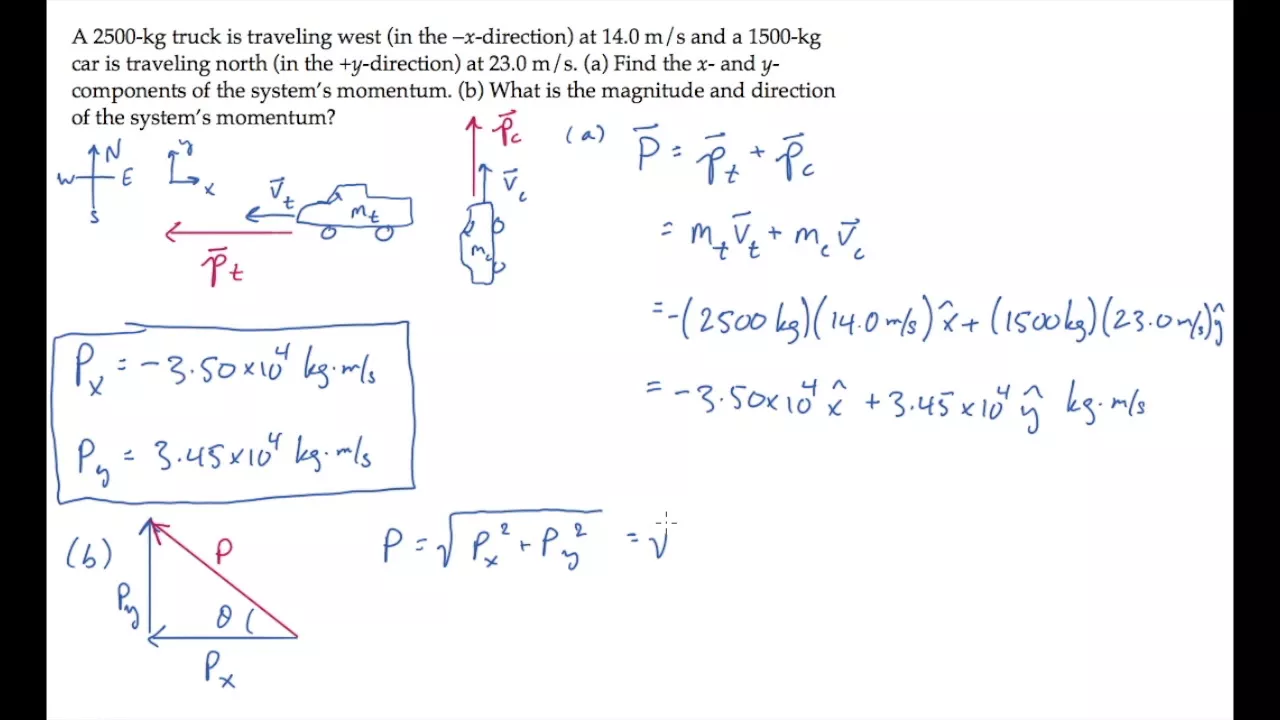 A 2500-kg truck is traveling west (in the –x-direction) at 14.0 m/s and a 1500-kg
car is traveling north (in the +y-direction) at 23.0 m/s. (a) Find the x- and y-
components of the system's momentum. (b) What is the magnitude and direction
of the system's momentum?
N
W E
S
y
x
v⃗_t
m_t
p⃗_t
p⃗_c
v⃗_c
m_c
(a) P⃗ = p⃗_t + p⃗_c
= m_t v⃗_t + m_c v⃗_c
= -(2500 kg)(14.0 m/s) x̂ + (1500 kg)(23.0 m/s) ŷ
= -3.50×10⁴ x̂ + 3.45×10⁴ ŷ kg·m/s
P_x = -3.50×10⁴ kg·m/s
P_y = 3.45×10⁴ kg·m/s
(b)
P
P_y
θ
P_x
P = √(P_x² + P_y²) = √